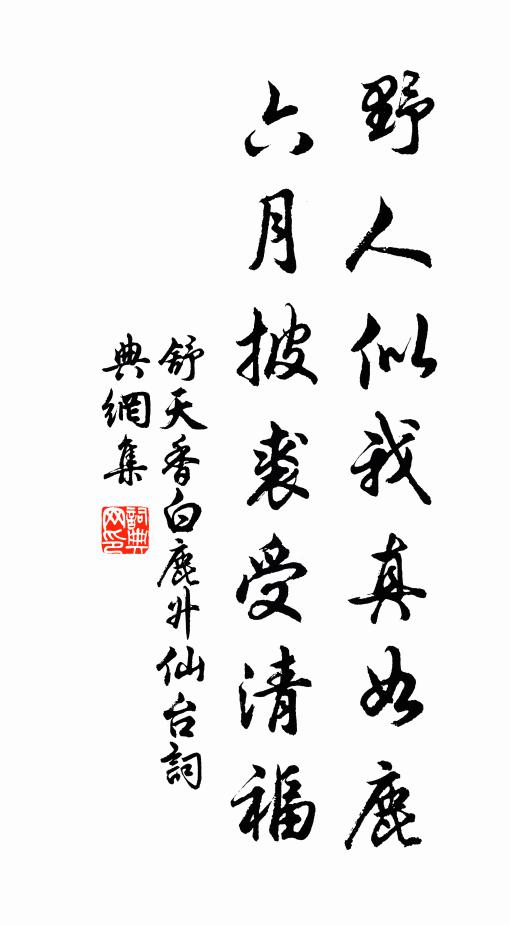 野人似我真如鹿
六月披裘受清福
舒天香白鹿升仙台詞
典網集
詞典網印